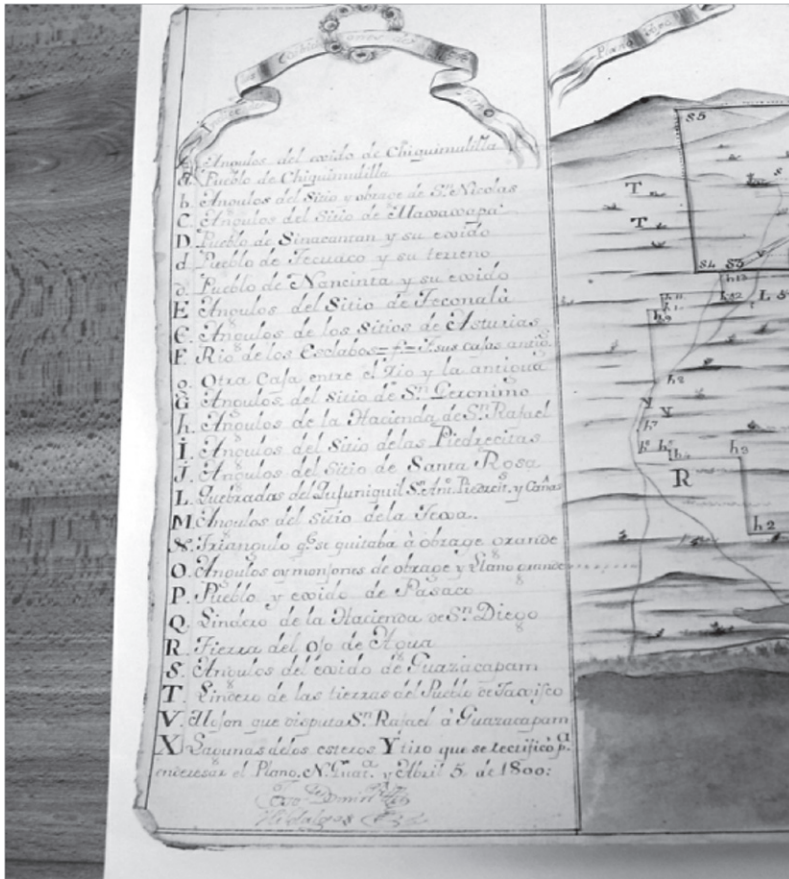 Angulos del exido de Chiquimulilla
a. Pueblo de Chiquimulilla
b. Angulos del Sitio y obrage de Sn. Nicolas
C. Angulos del Sitio de
D. Pueblo de Sinacantan y su exido
d. Pueblo de Tecuaco y su terreno
Pueblo de Nancinta y su exido
E Angulos del Sitio de Teconalà
Є. Angulos de los Sitios de Asturias
F. Rio de los Esclabos=f=Y sus cajas antig.
g. Otra Caja entre el Rio y la antigua
G Angulos del sitio de Sn. Geronimo
h. Angulos de la Hacienda de Sn. Rafael
i. Angulos del Sitio delas Piedrecitas
J. Angulos del sitio de Santa Rosa
L. Quebradas del y Cañas
M. Angulos del sitio dela
N. Triangulo q.e se quitaba à obrage grande
O. Angulos oy monjones de obrage y Llano grande
P. Pueblo y exido de Pasaco
Q. Lindero de la Hacienda de Sn. Diego
R. Tierra del ojo de Agua
S. Angulos del exido de Guazacapam
T. Lindero de las tierras del Pueblo de Taxisco
V. Mojon que disputa Sn. Rafael à Guazacapam
X Lagunas delos esteros Y tiro que se rectificò p.a
enderesar el Plano. N. Guat.a y Abril 5 de 1800:
Plano
S5
T
T
S4
S3
h13
L
h9
h8
h7
R
h3
h2